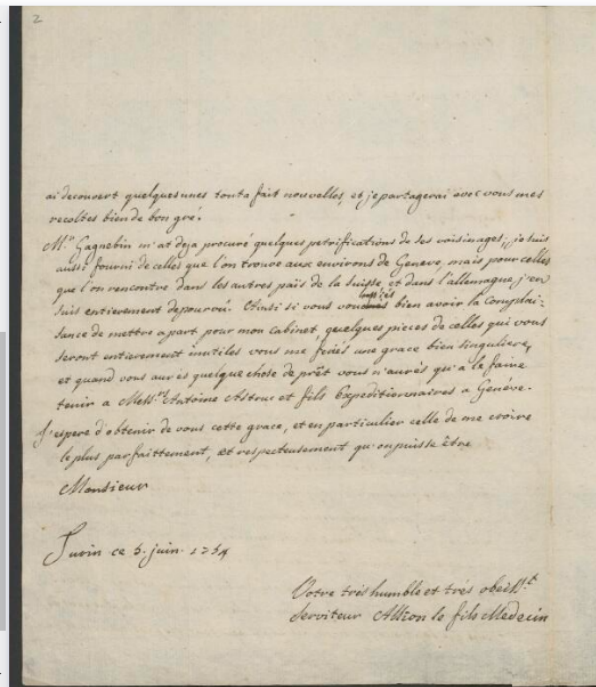 2
ai decouvert quelques unes tout a fait nouvelles, et je partagerai avec vous mes
recoltes bien de bon gré.
Mr. Gagnebin m'at deja procuré quelques petrifications de ses voisinages; je suis
aussi fourni de celles que l'on trouve aux environs de Geneve, mais pour celles
que l'on rencontre dans les autres païs de la Suisse et dans l'allemagne j'en
suis entierement depourvû. Ainsi si vous bien avoir la Complai-
sance de mettre a part pour mon cabinet, quelques pieces de celles qui vous
seront entierement inutiles vous me feriés une grace bien singuliere,
et quand vous aurés quelque chose de prêt vous n'aurés qu'a le faire
tenir a Messrs. Antoine Astruc et fils Expeditionaires a Genéve.
J'espere d'obtenir de vous cette grace, et en particulier celle de me croire
le plus parfaittement, et respecteusement qu'on puisse être
Monsieur
Turin ce 5. juin 1754
Votre trés humble et trés obeisst.
Serviteur Allion le fils Medecin